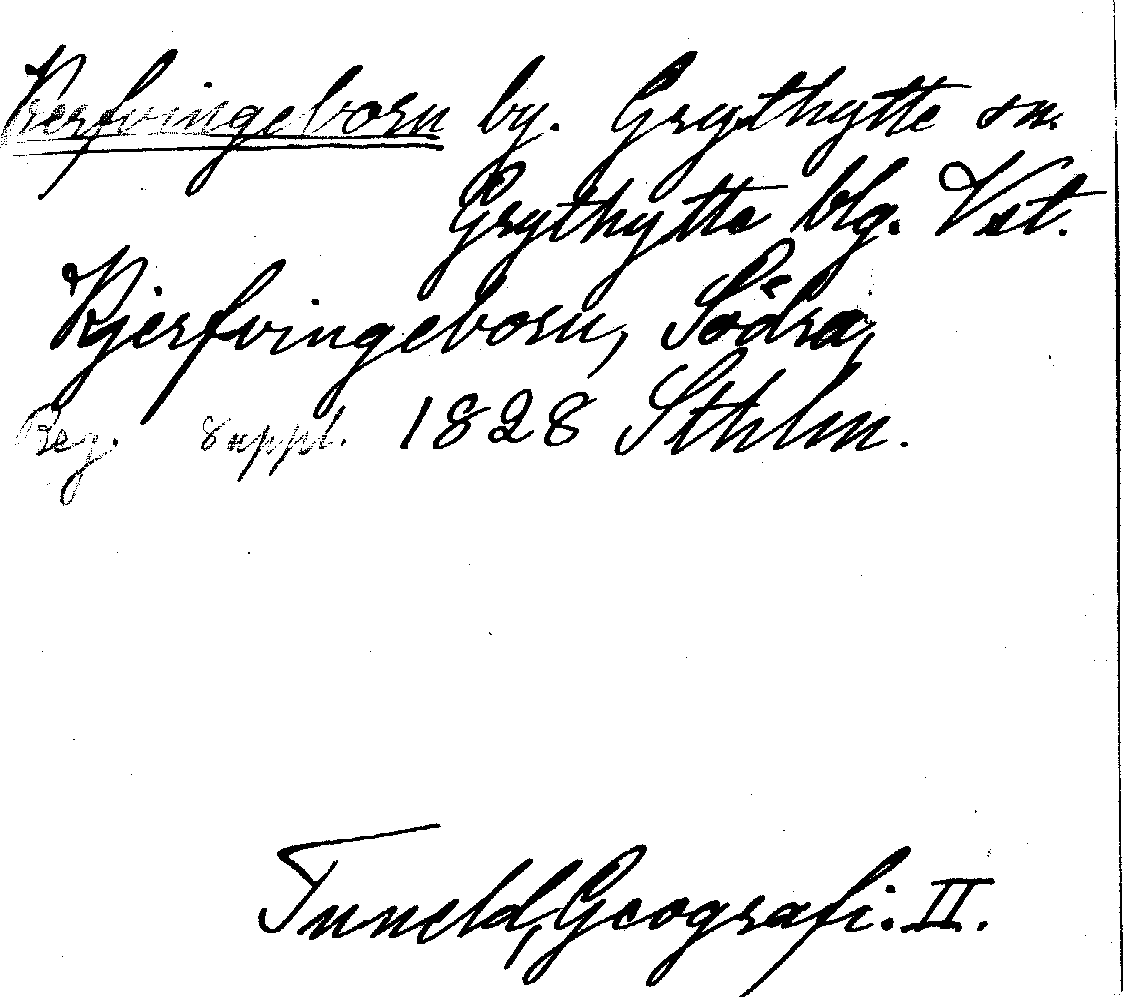 Kerfvingeborn by. Grythytte sn.
Grythytte blg. Vst.
Kjerfvingeborn, Södra,
Reg. suppl. 1828 Sthlm.
Tuneld, Geografi. II.